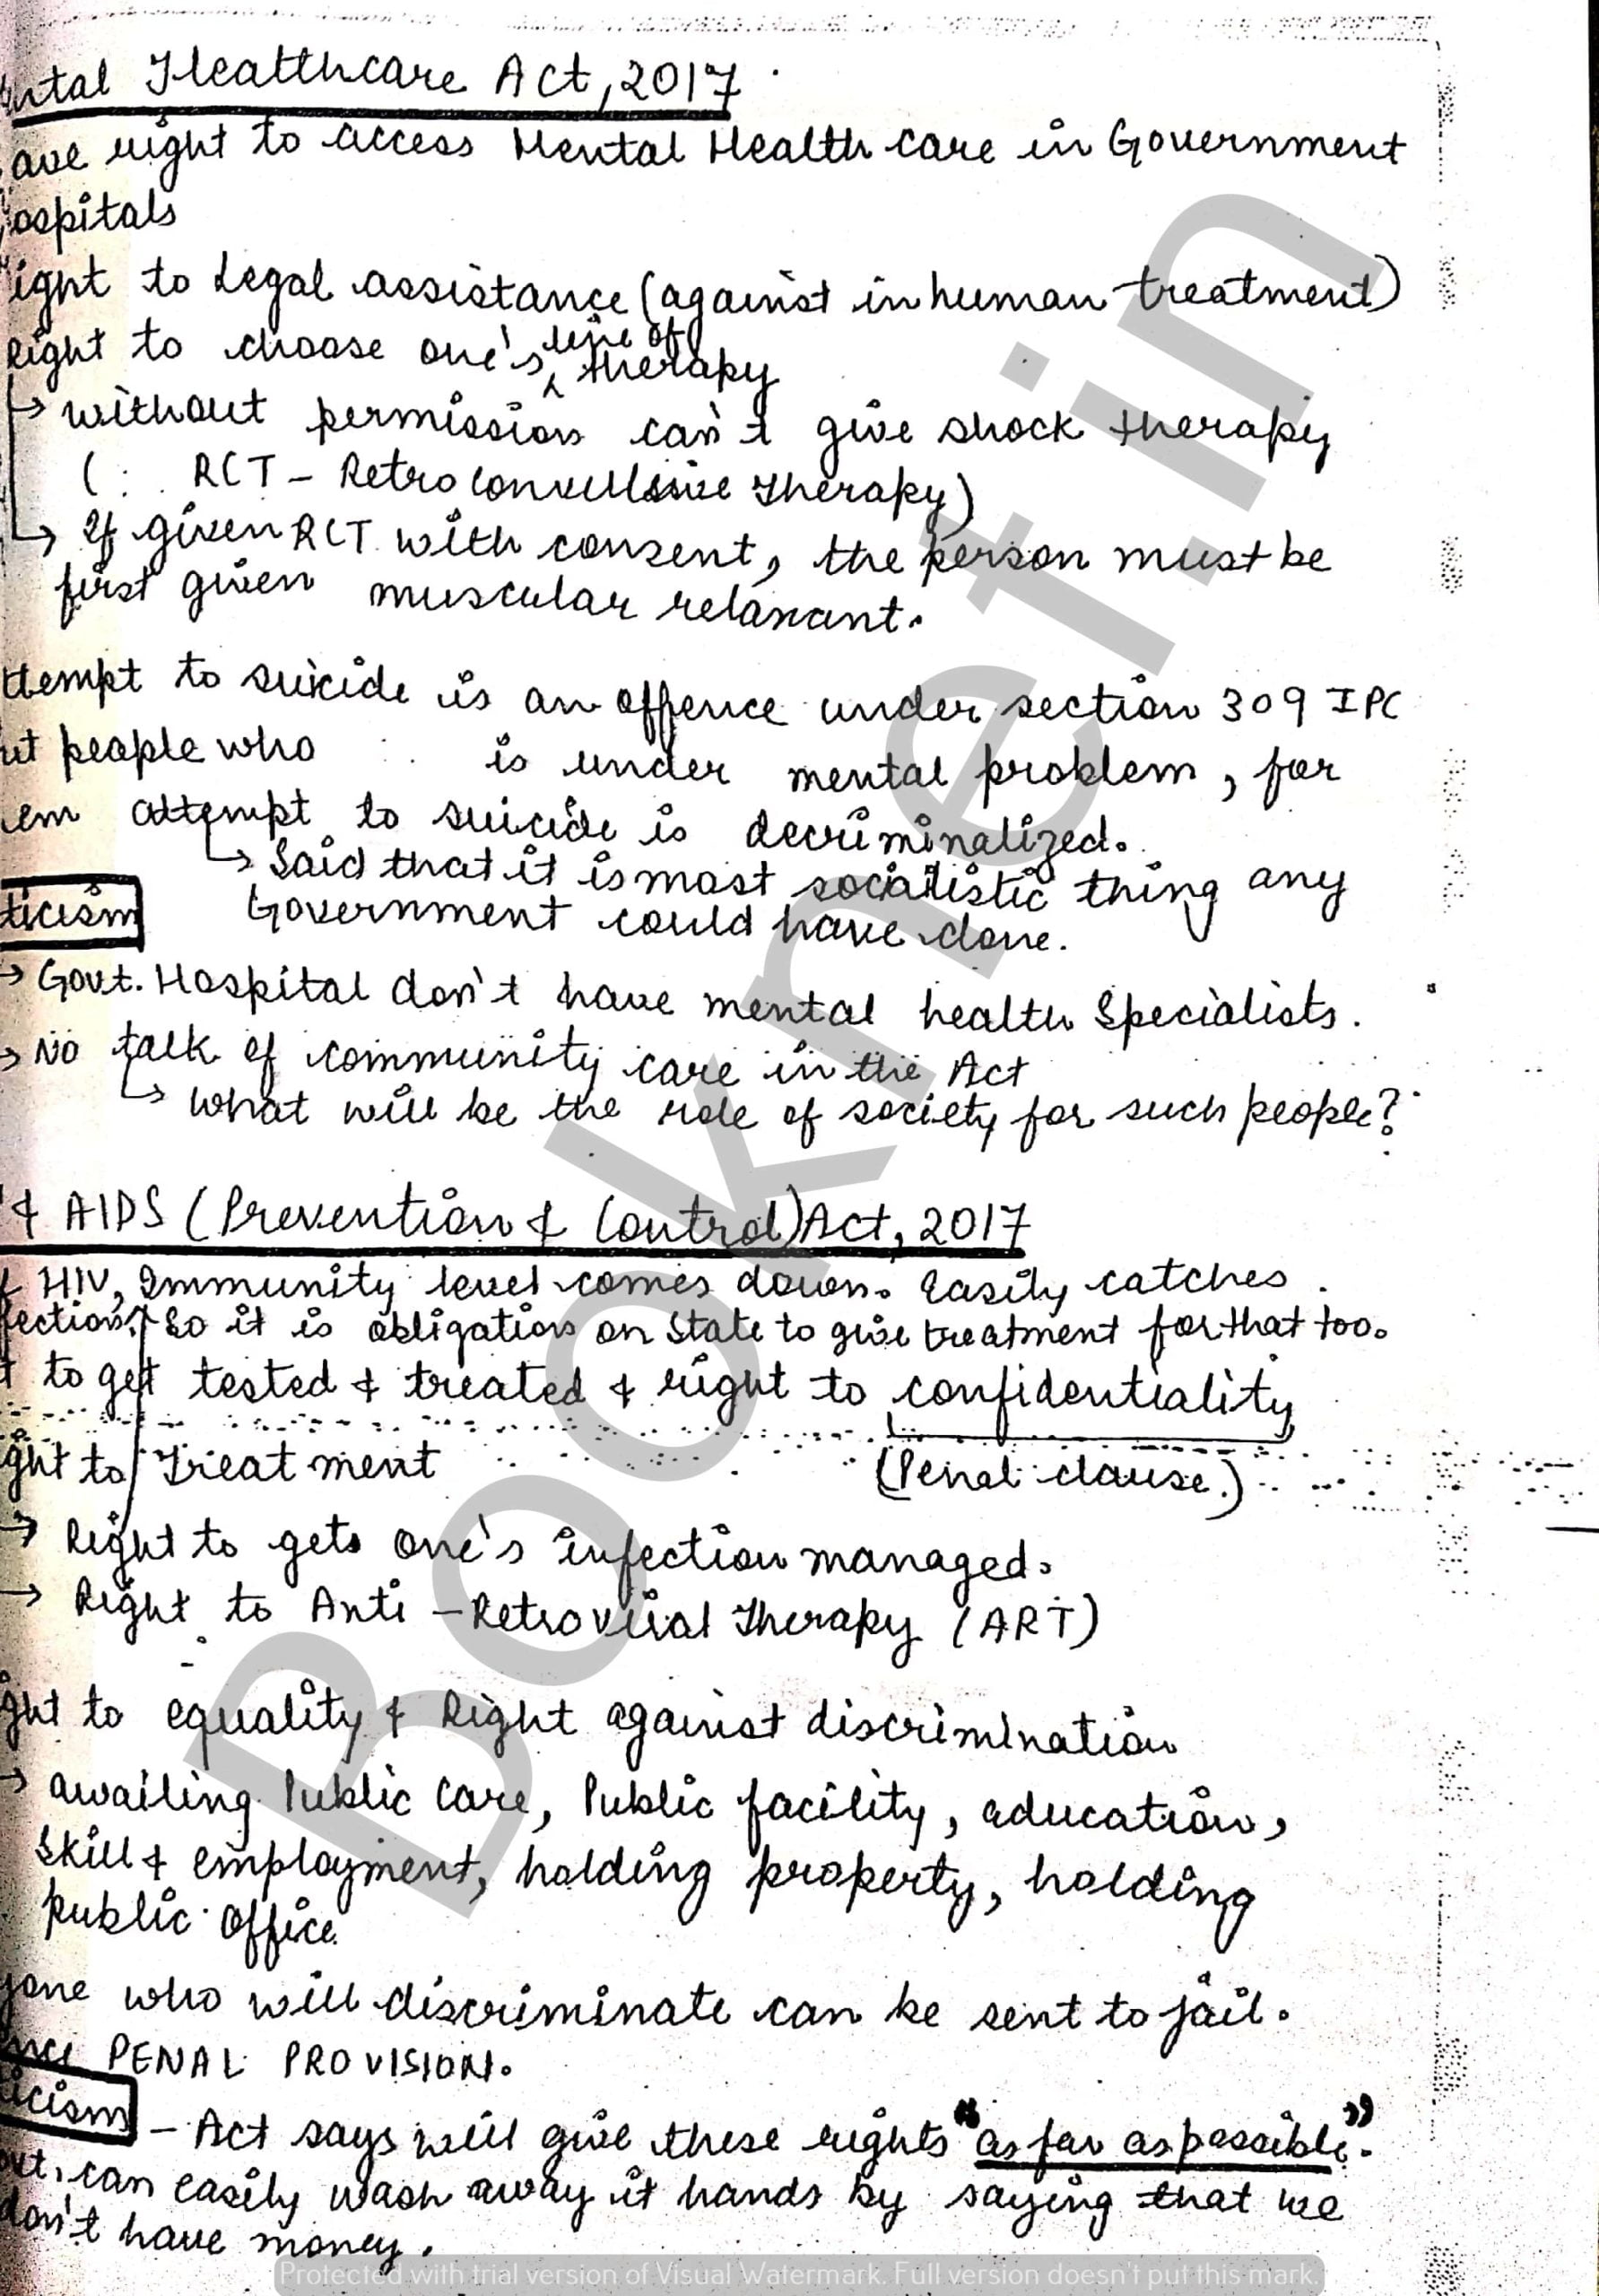 ntal Healthcare Act, 2017
ave right to access Mental Health care in Government
ospitals
ight to Legal assistance (against inhuman treatment)
Right to choose one's line of therapy
→ without permission can't give shock therapy
( : RCT - Retro Convulsive Therapy)
→ If given RCT with consent, the person must be
first given muscular relaxant.
ttempt to suicide is an offence under section 309 IPC
ut people who is under mental problem, for
em attempt to suicide is decriminalized.
→ Said that it is most socialistic thing any
Government could have done.
ticism
→ Govt. Hospital don't have mental health Specialists.
→ No talk of community care in the Act
→ What will be the role of society for such people?
& AIDS (Prevention & Control) Act, 2017
f HIV, Immunity level comes down. Easily catches
fections. So it is obligation on State to give treatment for that too.
t to get tested & treated & right to confidentiality
(Penal clause.)
ght to Treatment
→ Right to gets one's infection managed.
→ Right to Anti-Retroviral Therapy (ART)
ght to equality & Right against discrimination
→ awailing Public Care, Public facility, education,
Skill & employment, holding property, holding
public office
yone who will discriminate can be sent to jail.
nce PENAL PROVISION.
icism - Act says will give these rights "as far as possible".
ovt. can easily wash away it hands by saying that we
don't have money.
Booknet.in
Protected with trial version of Visual Watermark. Full version doesn't put this mark.